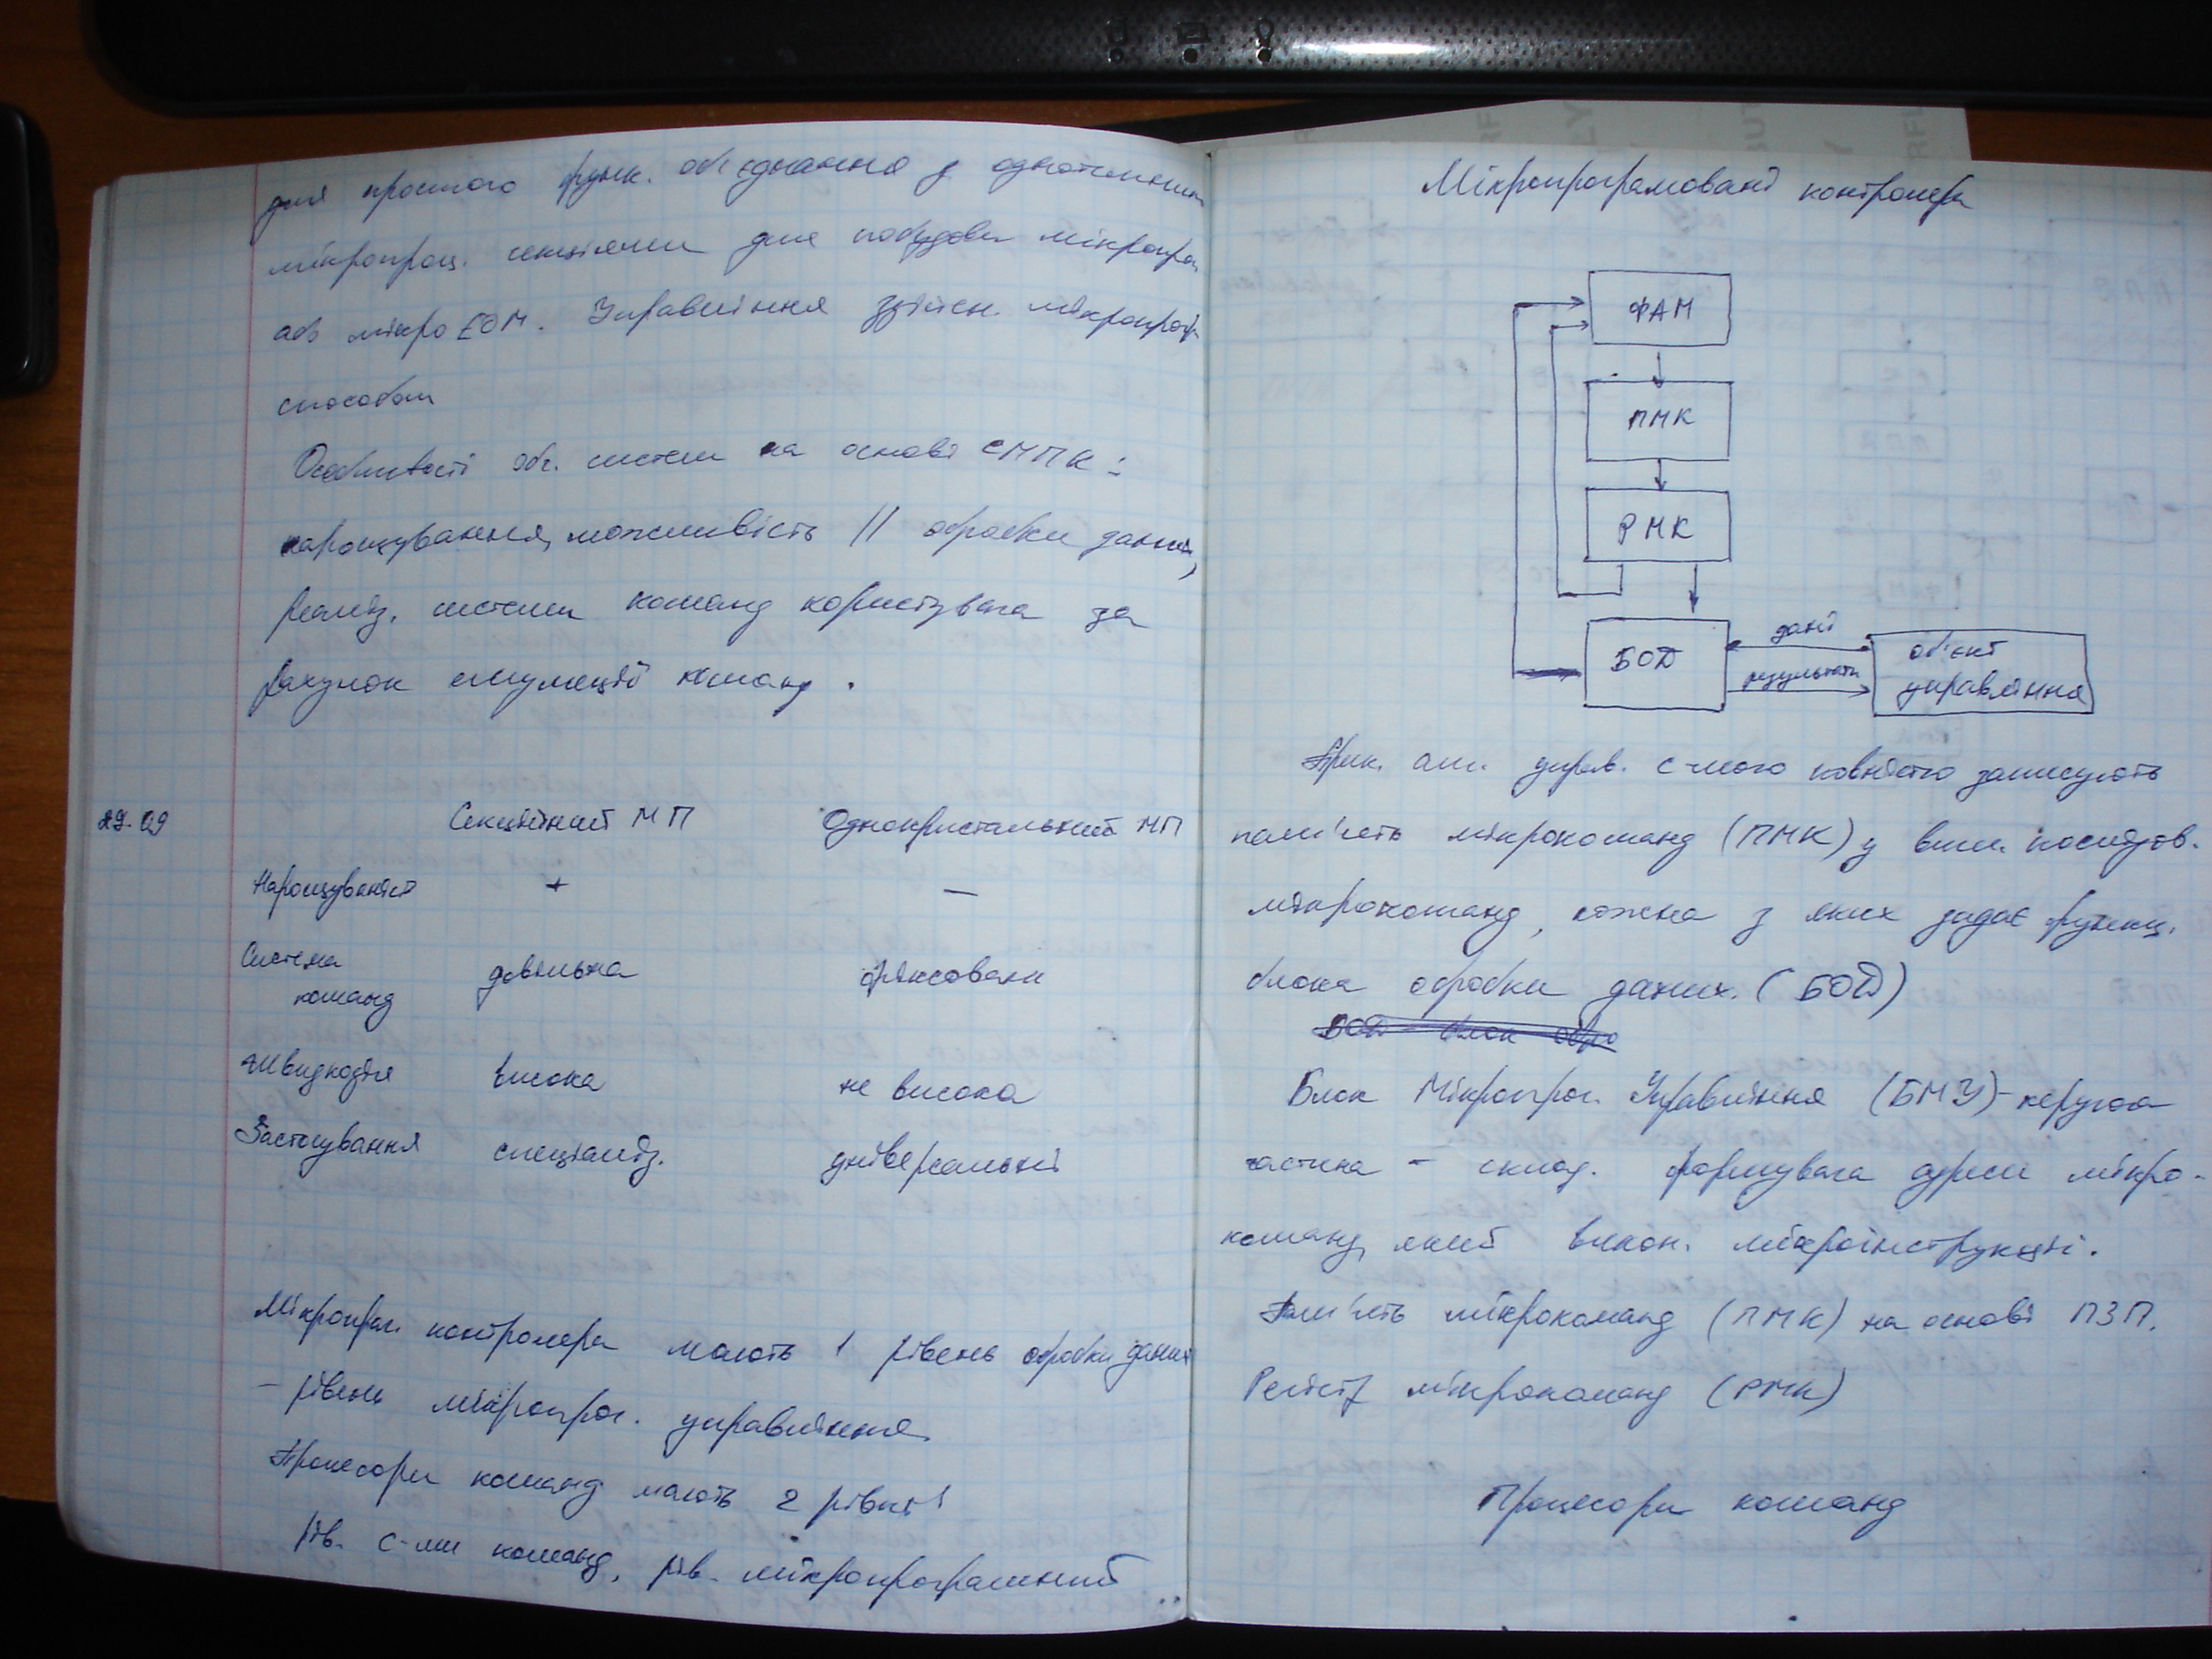 для простого функ. об'єднання з однотипними
мікропроц. секціями для побудови мікропроц
або мікро ЕОМ. Управління здійсн. мікропрогр
способом
Особливості об. систем на основі СМПК:
нарощування, можливість || обробки даних,
реаліз. системи команд користувача за
рахунок емуляції команд.
29.09
Секційний МП Однокристальний МП
Нарощуваність + —
Система
команд довільна фіксована
Швидкодія висока не висока
Застосування спеціаліз. універсальні
Мікропрог. контролери мають 1 рівень обробки даних
- рівень мікропрог. управління
Процесори команд мають 2 рівні
рів. с-ми команд, рів. мікропрограмний
Мікропрограмовані контролери
ФАМ
ПМК
РМК
БОД
дані
результати
об'єкт
управління
упрв. с-мого повністю записують
пам'ять мікрокоманд (ПМК) у вигл. послідов.
мікрокоманд, кожна з яких задає функц.
блока обробки даних. (БОД)
БОД - блок обро
Блок Мікропрог. Управління (БМУ) - керуюча
частина - склад. формувача адреси мікро-
команд, який викон. мікроінструкції.
Пам'ять мікрокоманд (ПМК) на основі ПЗП.
Регістр мікрокоманд (РМК)
Процесори команд